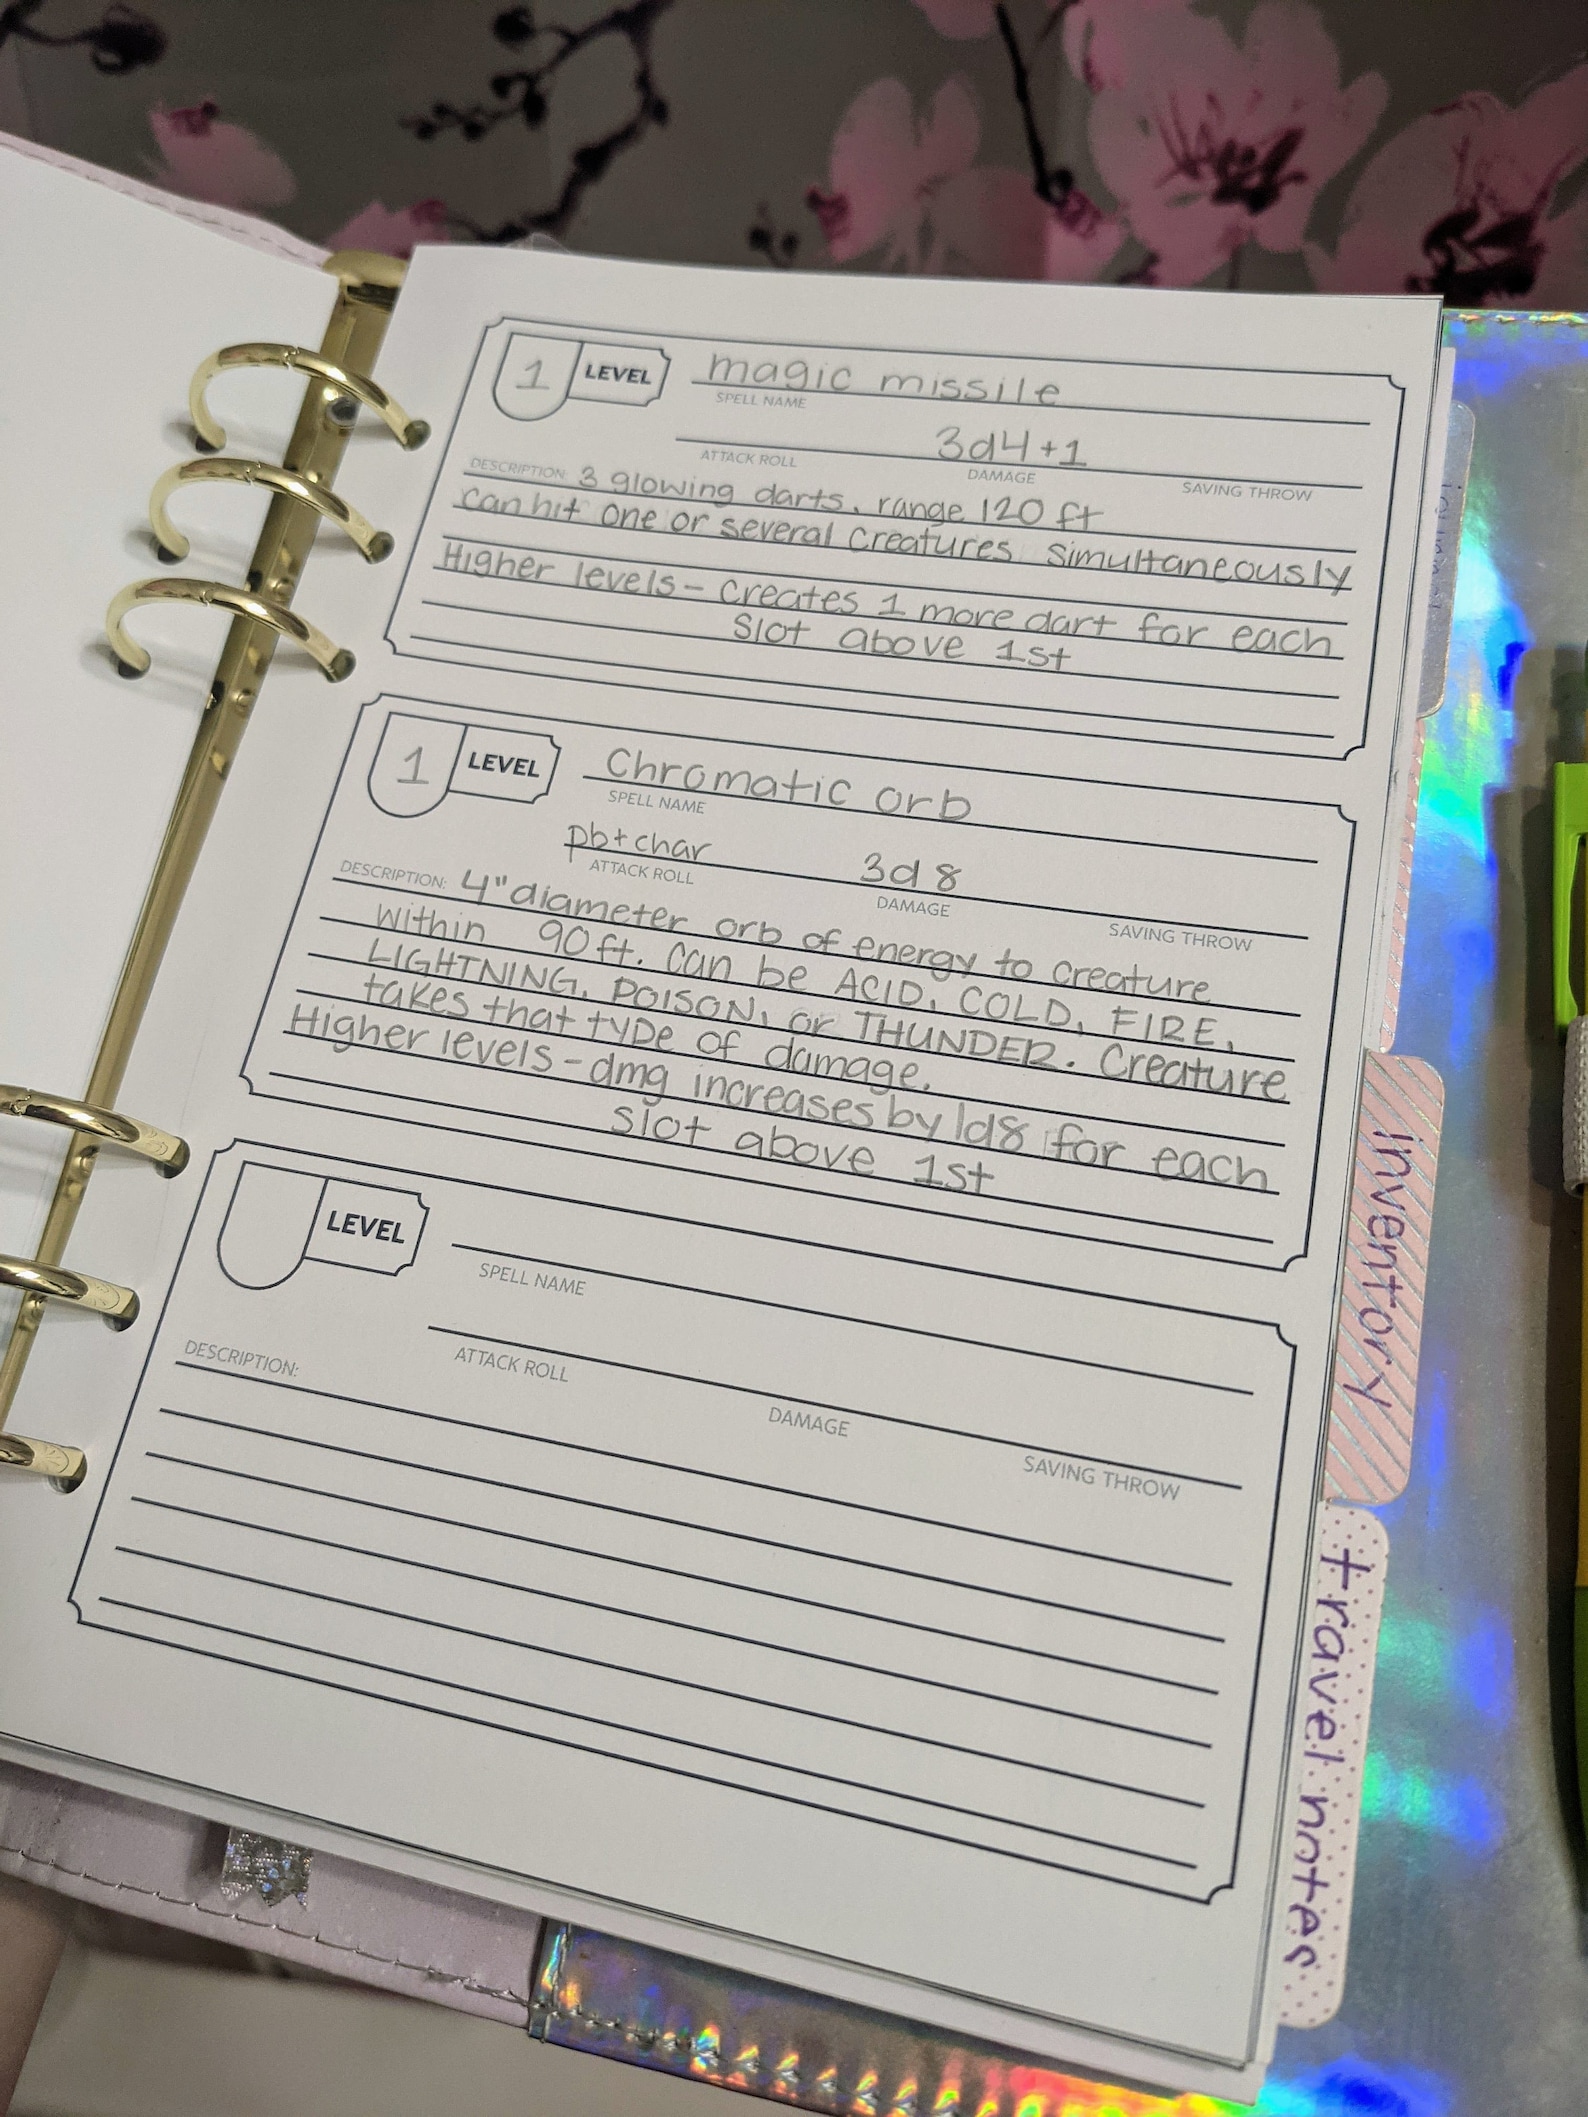 1 LEVEL magic missile
SPELL NAME
3d4+1
ATTACK ROLL DAMAGE SAVING THROW
DESCRIPTION: 3 glowing darts, range 120 ft
can hit one or several creatures simultaneously
Higher levels - creates 1 more dart for each
slot above 1st
1 LEVEL Chromatic orb
SPELL NAME
pb+char 3d8
ATTACK ROLL DAMAGE SAVING THROW
DESCRIPTION: 4" diameter orb of energy to creature
within 90ft. Can be ACID, COLD, FIRE,
LIGHTNING, POISON, or THUNDER. Creature
takes that type of damage.
Higher levels - dmg increases by 1d8 for each
slot above 1st
LEVEL
SPELL NAME
ATTACK ROLL DAMAGE SAVING THROW
DESCRIPTION:
Inventory
travel notes